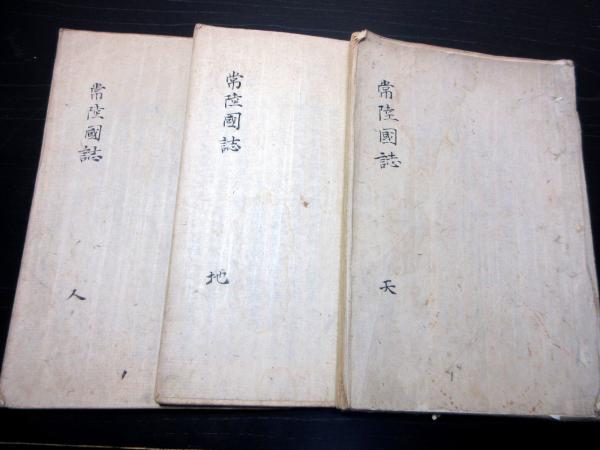 常陸國誌
天
常陸國誌
地
常陸國誌
人